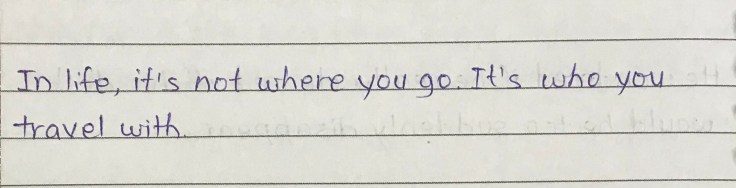 In life, it's not where you go. It's who you
travel with.